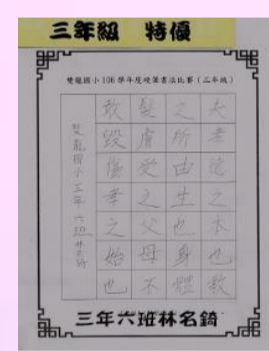 三年級 特優
雙龍國小106學年度硬筆書法比賽（三年級）
夫孝德之本也教
之所由生也身體
髮膚受之父母不
敢毀傷孝之始也
雙龍國小三年六班林名錡
三年六班林名錡